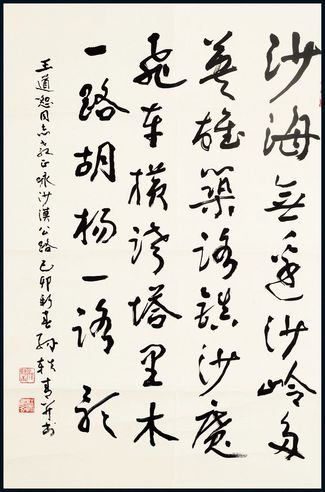 沙海無邊沙岭多
英雄築路鎮沙魔
飛车橫跨塔里木
一路胡杨一路歌
王道恕同志教正咏沙漠公路己卯新春孙轶青并书